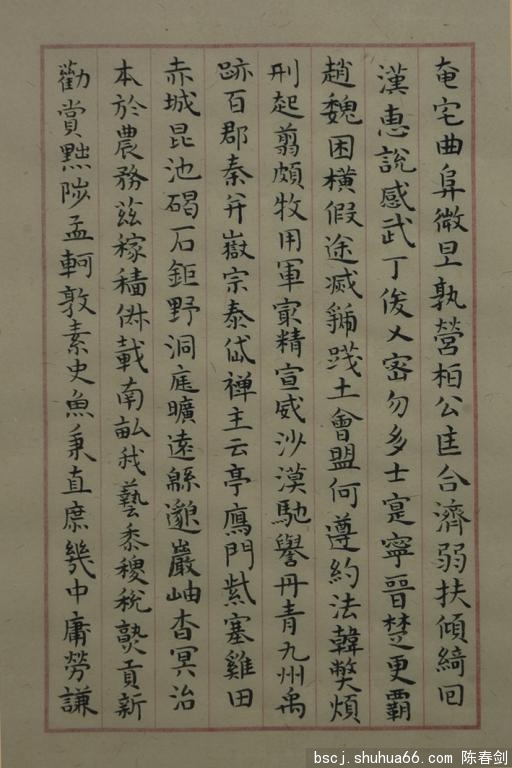 奄宅曲阜微旦孰營桓公匡合濟弱扶傾綺回
漢惠說感武丁俊乂密勿多士寔寧晉楚更霸
趙魏困橫假途滅虢踐土會盟何遵約法韓弊煩
刑起翦頗牧用軍最精宣威沙漠馳譽丹青九州禹
跡百郡秦并嶽宗泰岱禪主云亭鴈門紫塞雞田
赤城昆池碣石鉅野洞庭曠遠緜邈巖岫杳冥治
本於農務茲稼穡俶載南畝我藝黍稷稅熟貢新
勸賞黜陟孟軻敦素史魚秉直庶幾中庸勞謙
bscj.shuhua66.com 陈春剑